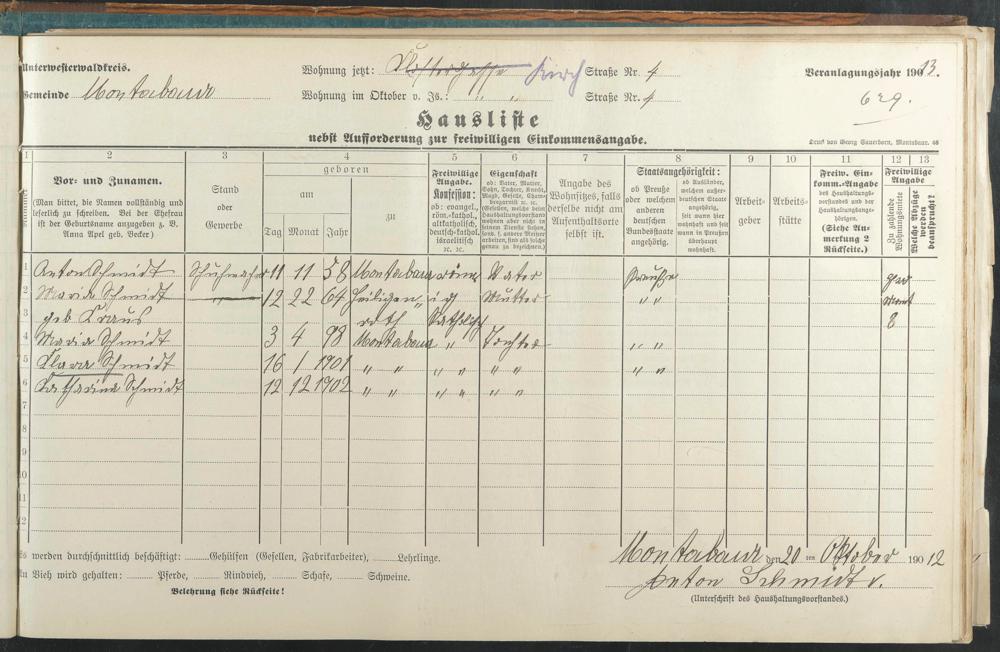 Unterwesterwaldkreis.
Wohnung jetzt: Klostergasse Kirch Straße Nr. 4
Veranlagungsjahr 190 13.
Gemeinde Montabaur
Wohnung im Oktober v. Js.: " " Straße Nr. 4
629.
Hausliste
nebst Aufforderung zur freiwilligen Einkommensangabe.
Druck von Georg Sauerborn, Montabaur.
1 2 3 4 5 6 7 8 9 10 11 12 13
Vor- und Zunamen.
(Man bittet, die Namen vollständig und
leserlich zu schreiben. Bei der Ehefrau
ist der Geburtsname anzugeben z. B.
Anna Apel geb. Becker)
Stand
oder
Gewerbe
geboren
am
Tag Monat Jahr
zu
Freiwillige
Angabe.
Konfession:
ob: evangel.,
röm.-kathol.,
altkatholisch,
deutsch-kathol.
israelitisch
2c. 2c.
Eigenschaft
ob: Vater, Mutter,
Sohn, Tochter, Knecht,
Magd, Geselle, Cham-
bregarnist 2c. 2c.
Angabe des
Wohnsitzes, falls
derselbe nicht am
Aufenthaltsorte
selbst ist.
Staatsangehörigkeit:
ob Preuße
oder welchem
anderen
deutschen
Bundesstaate
angehörig.
ob Ausländer,
welchem außer-
deutschen Staate
angehörig,
seit wann hier
wohnhaft und
seit wann in Preußen
überhaupt
wohnhaft
Arbeit-
geber
Arbeits-
stätte
Freiw. Ein-
komm.-Angabe
des Haushaltungs-
vorstandes und der
Haushaltungsange-
hörigen.
(Siehe An-
merkung 2
Rückseite.)
Freiwillige
Angabe
Zu zahlende
Wohnungsmiete
Welche Abzüge
werden
beansprucht?
1 Anton Schmidt Schuhmacher 11 11 58 Montabaur röm Vater Preuße
2 Maria Schmidt 12 22 64 Heiligen " ig Mutter " "
3 geb Kraus roth katholisch 8
4 Maria Schmidt 3 4 98 Montabaur " Tochter " "
5 Klara Schmidt 16 1 1901 " " " " " " " "
6 Katharina Schmidt 12 12 1902 " " " " " "
7
8
9
Es werden durchschnittlich beschäftigt: Gehülfen (Gesellen, Fabrikarbeiter), Lehrlinge.
An Vieh wird gehalten: Pferde, Rindvieh, Schafe, Schweine.
Belehrung siehe Rückseite!
Montabaur den 20 ten Oktober 190 12
Anton Schmidt
(Unterschrift des Haushaltungsvorstandes.)